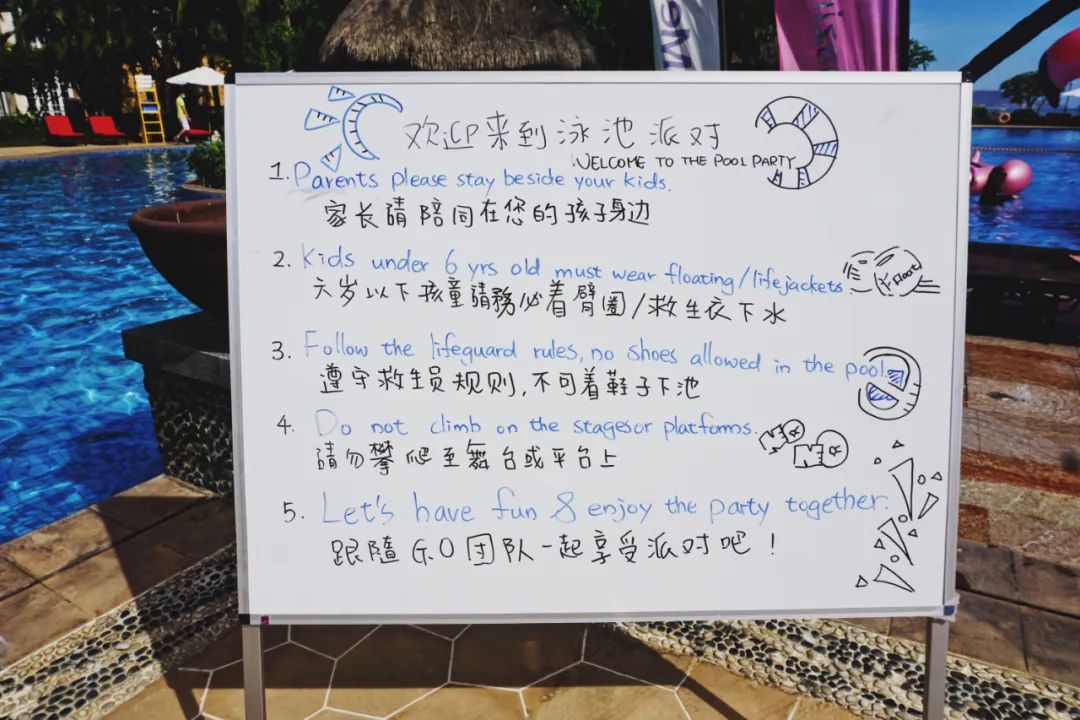 欢迎来到泳池派对
WELCOME TO THE POOL PARTY
1. Parents please stay beside your kids.
家长請陪同在您的孩子身边
2. Kids under 6 yrs old must wear floating/lifejackets.
六岁以下孩童請務必着臂圈/救生衣下水
Float
3. Follow the lifeguard rules, no shoes allowed in the pool.
遵守救生员规则,不可着鞋子下池
4. Do not climb on the stagesor platforms.
請勿攀爬至舞台或平台上
5. Let's have fun & enjoy the party together.
跟隨G.O团队一起享受派对吧!